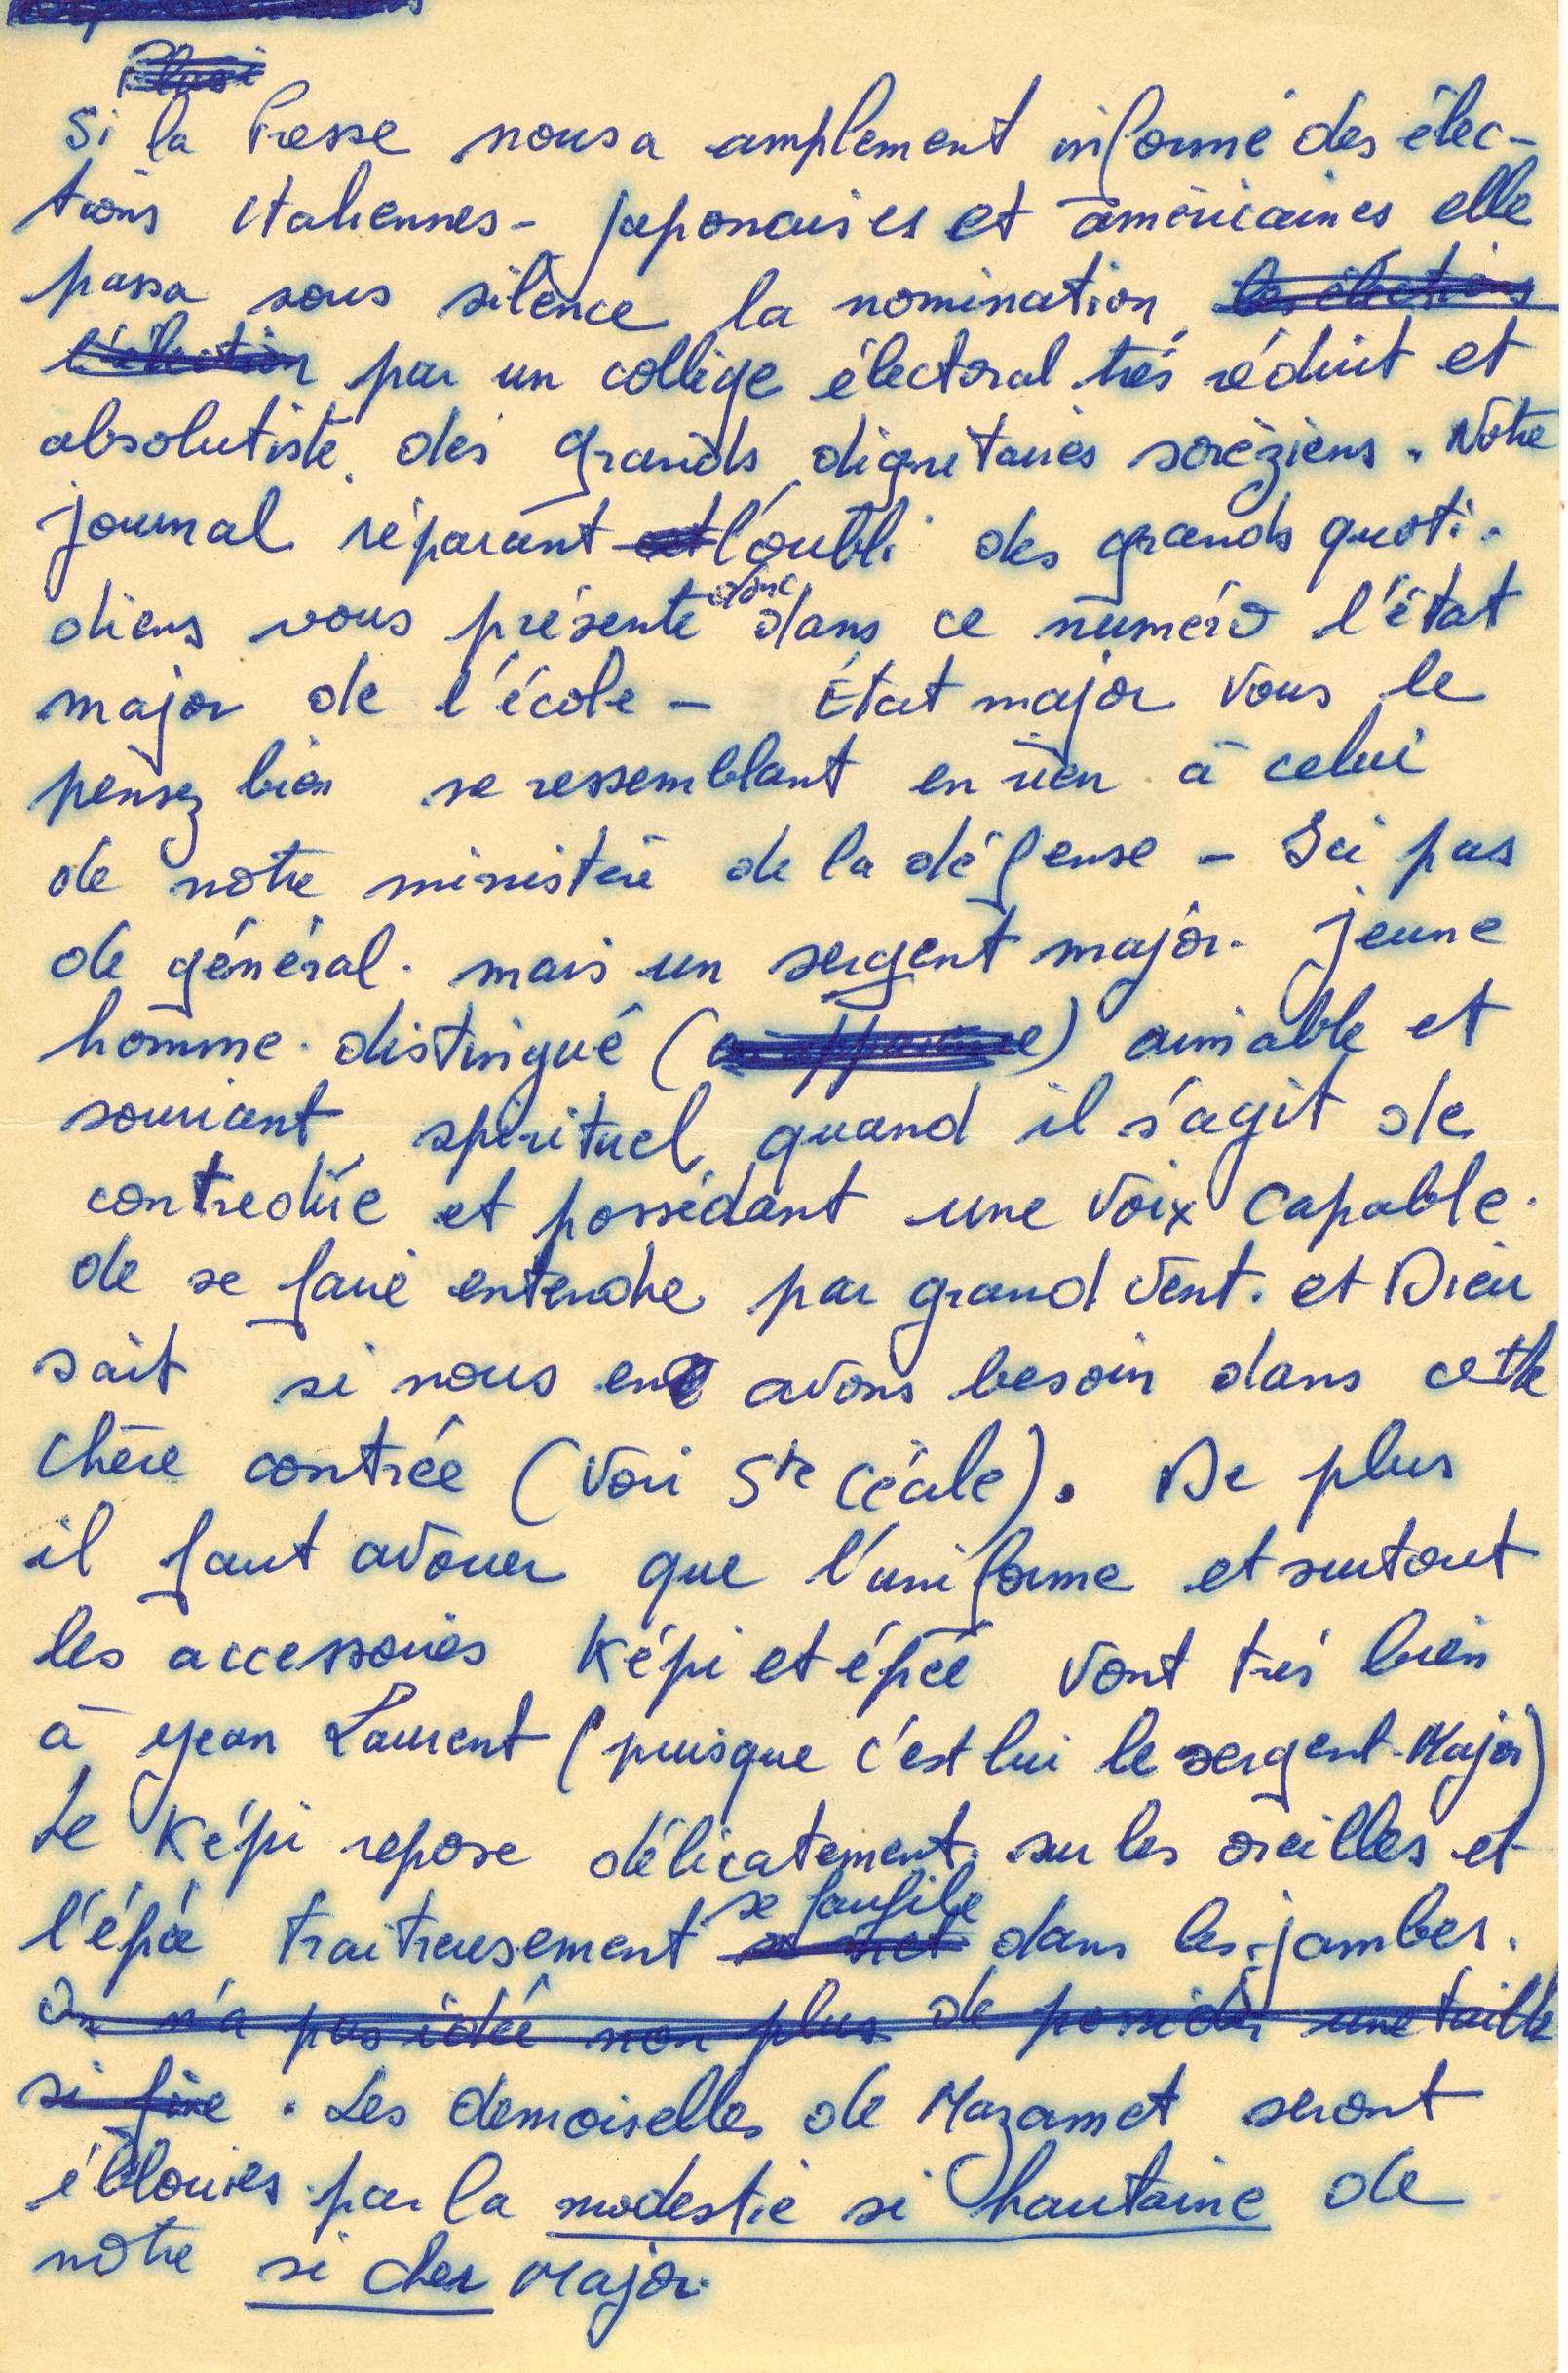 Si la Presse nous a amplement informé des élec-
tions italiennes - japonaises et américaines elle
passa sous silence la nomination les élections
l'élection par un collège électoral très réduit et
absolutiste des grands dignitaires soréziens. Notre
journal réparant et l'oubli des grands quoti-
donc
diens vous présente dans ce numéro l'état
major de l'école - État major vous le
pensez bien ne ressemblant en rien à celui
de notre ministère de la défense - Ici pas
de général. mais un sergent major. Jeune
homme distingué (en apparence) aimable et
souriant, spirituel, quand il s'agit de
contredire et possédant une voix capable
de se faire entendre par grand vent. et Dieu
sait si nous en avons besoin dans cette
chère contrée (voir Ste Cécile). De plus
il faut avouer que l'uniforme et surtout
les accessoires Képi et épée vont très bien
à Jean Laurent (puisque c'est lui le sergent-Major)
Le Képi repose délicatement sur les oreilles et
se faufile
l'épée traitreusement se met dans les jambes.
On n'a pas idée non plus de posséder une taille
si fine. Les demoiselles de Mazamet seront
éblouies par la modestie si hautaine de
notre si cher Major.